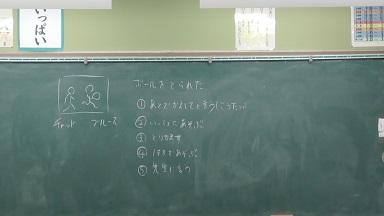 いっぱい
ボールをとられた
① あとでかしてと言う(こうたい)
② いっしょにあそぶ
③ とりかえす
④ 1人であそぶ
⑤ 先生に言う
チャット ブルース